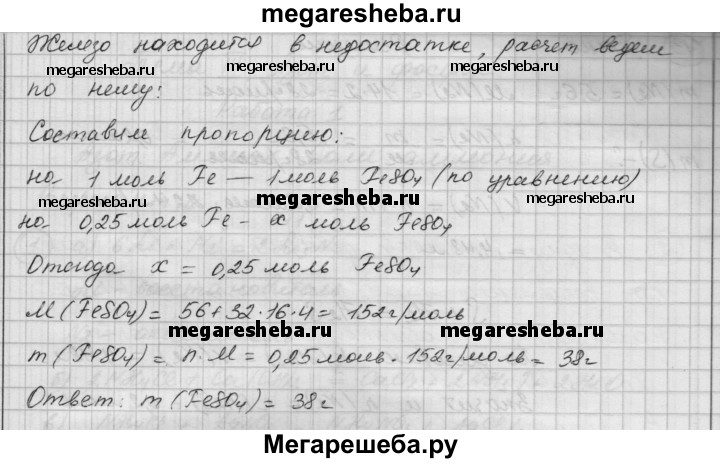 megaresheba.ru
Железо находится в недостатке, расчет ведем
megaresheba.ru megaresheba.ru
по нему:
Составим пропорцию:
на 1 моль Fe — 1 моль FeSO₄ (по уравнению)
megaresheba.ru megaresheba.ru
на 0,25 моль Fe - x моль FeSO₄
Отсюда x = 0,25 моль FeSO₄
M (FeSO₄) = 56+32·16·4 = 152 г/моль
megaresheba.ru megaresheba.ru
m (FeSO₄) = n·M = 0,25 моль · 152 г/моль = 38 г
Ответ: m (FeSO₄) = 38 г
Мегарешеба.ру